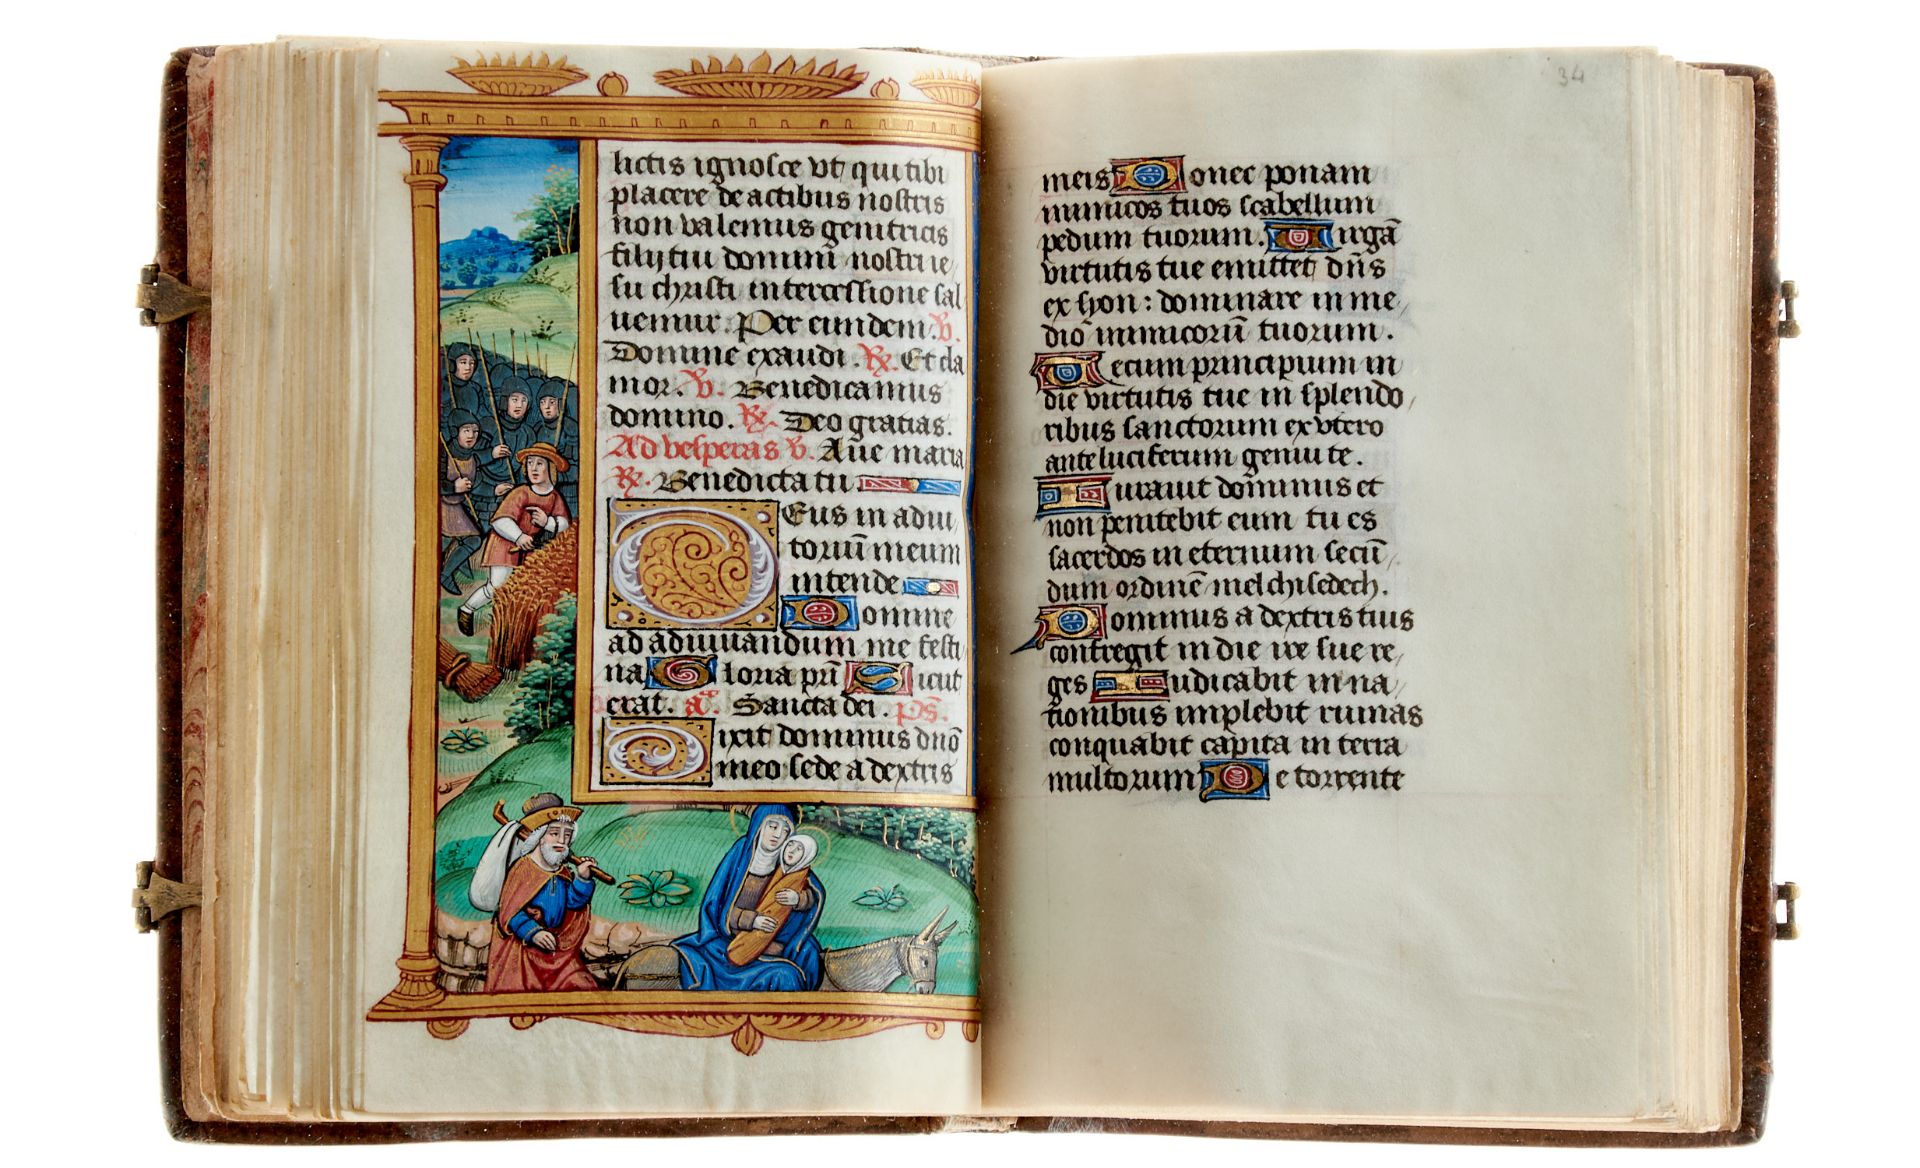 lictis ignosce vt qui tibi
placere de actibus nostris
non valemus genitricis
filij tui domini nostri ie
su christi intercessione sal
uemur. Per eundem. V.
Domine exaudi. R. Et cla
mor. V. Benedicamus
domino. R. Deo gratias.
Ad vesperas V. Aue maria
R. Benedicta tu
DEus in adiu
toriũ meum
intende
Domine
ad adiuuandum me festi
na Gloria pri Sicut
erat. añ. Sancta dei. ps.
Dixit dominus dño
meo sede a dextris
34
meis Donec ponam
inimicos tuos scabellum
pedum tuorum. Uirgã
virtutis tue emittet dñs
ex syon: dominare in me
dio inimicorũ tuorum.
Tecum principium in
die virtutis tue in splendo
ribus sanctorum ex vtero
ante luciferum genui te.
Iurauit dominus et
non penitebit eum tu es
sacerdos in eternum secũ
dum ordinẽ melchisedech.
Dominus a dextris tuis
confregit in die ire sue re
ges Iudicabit in na
tionibus implebit ruinas
conquabit capita in terra
multorum De torrente